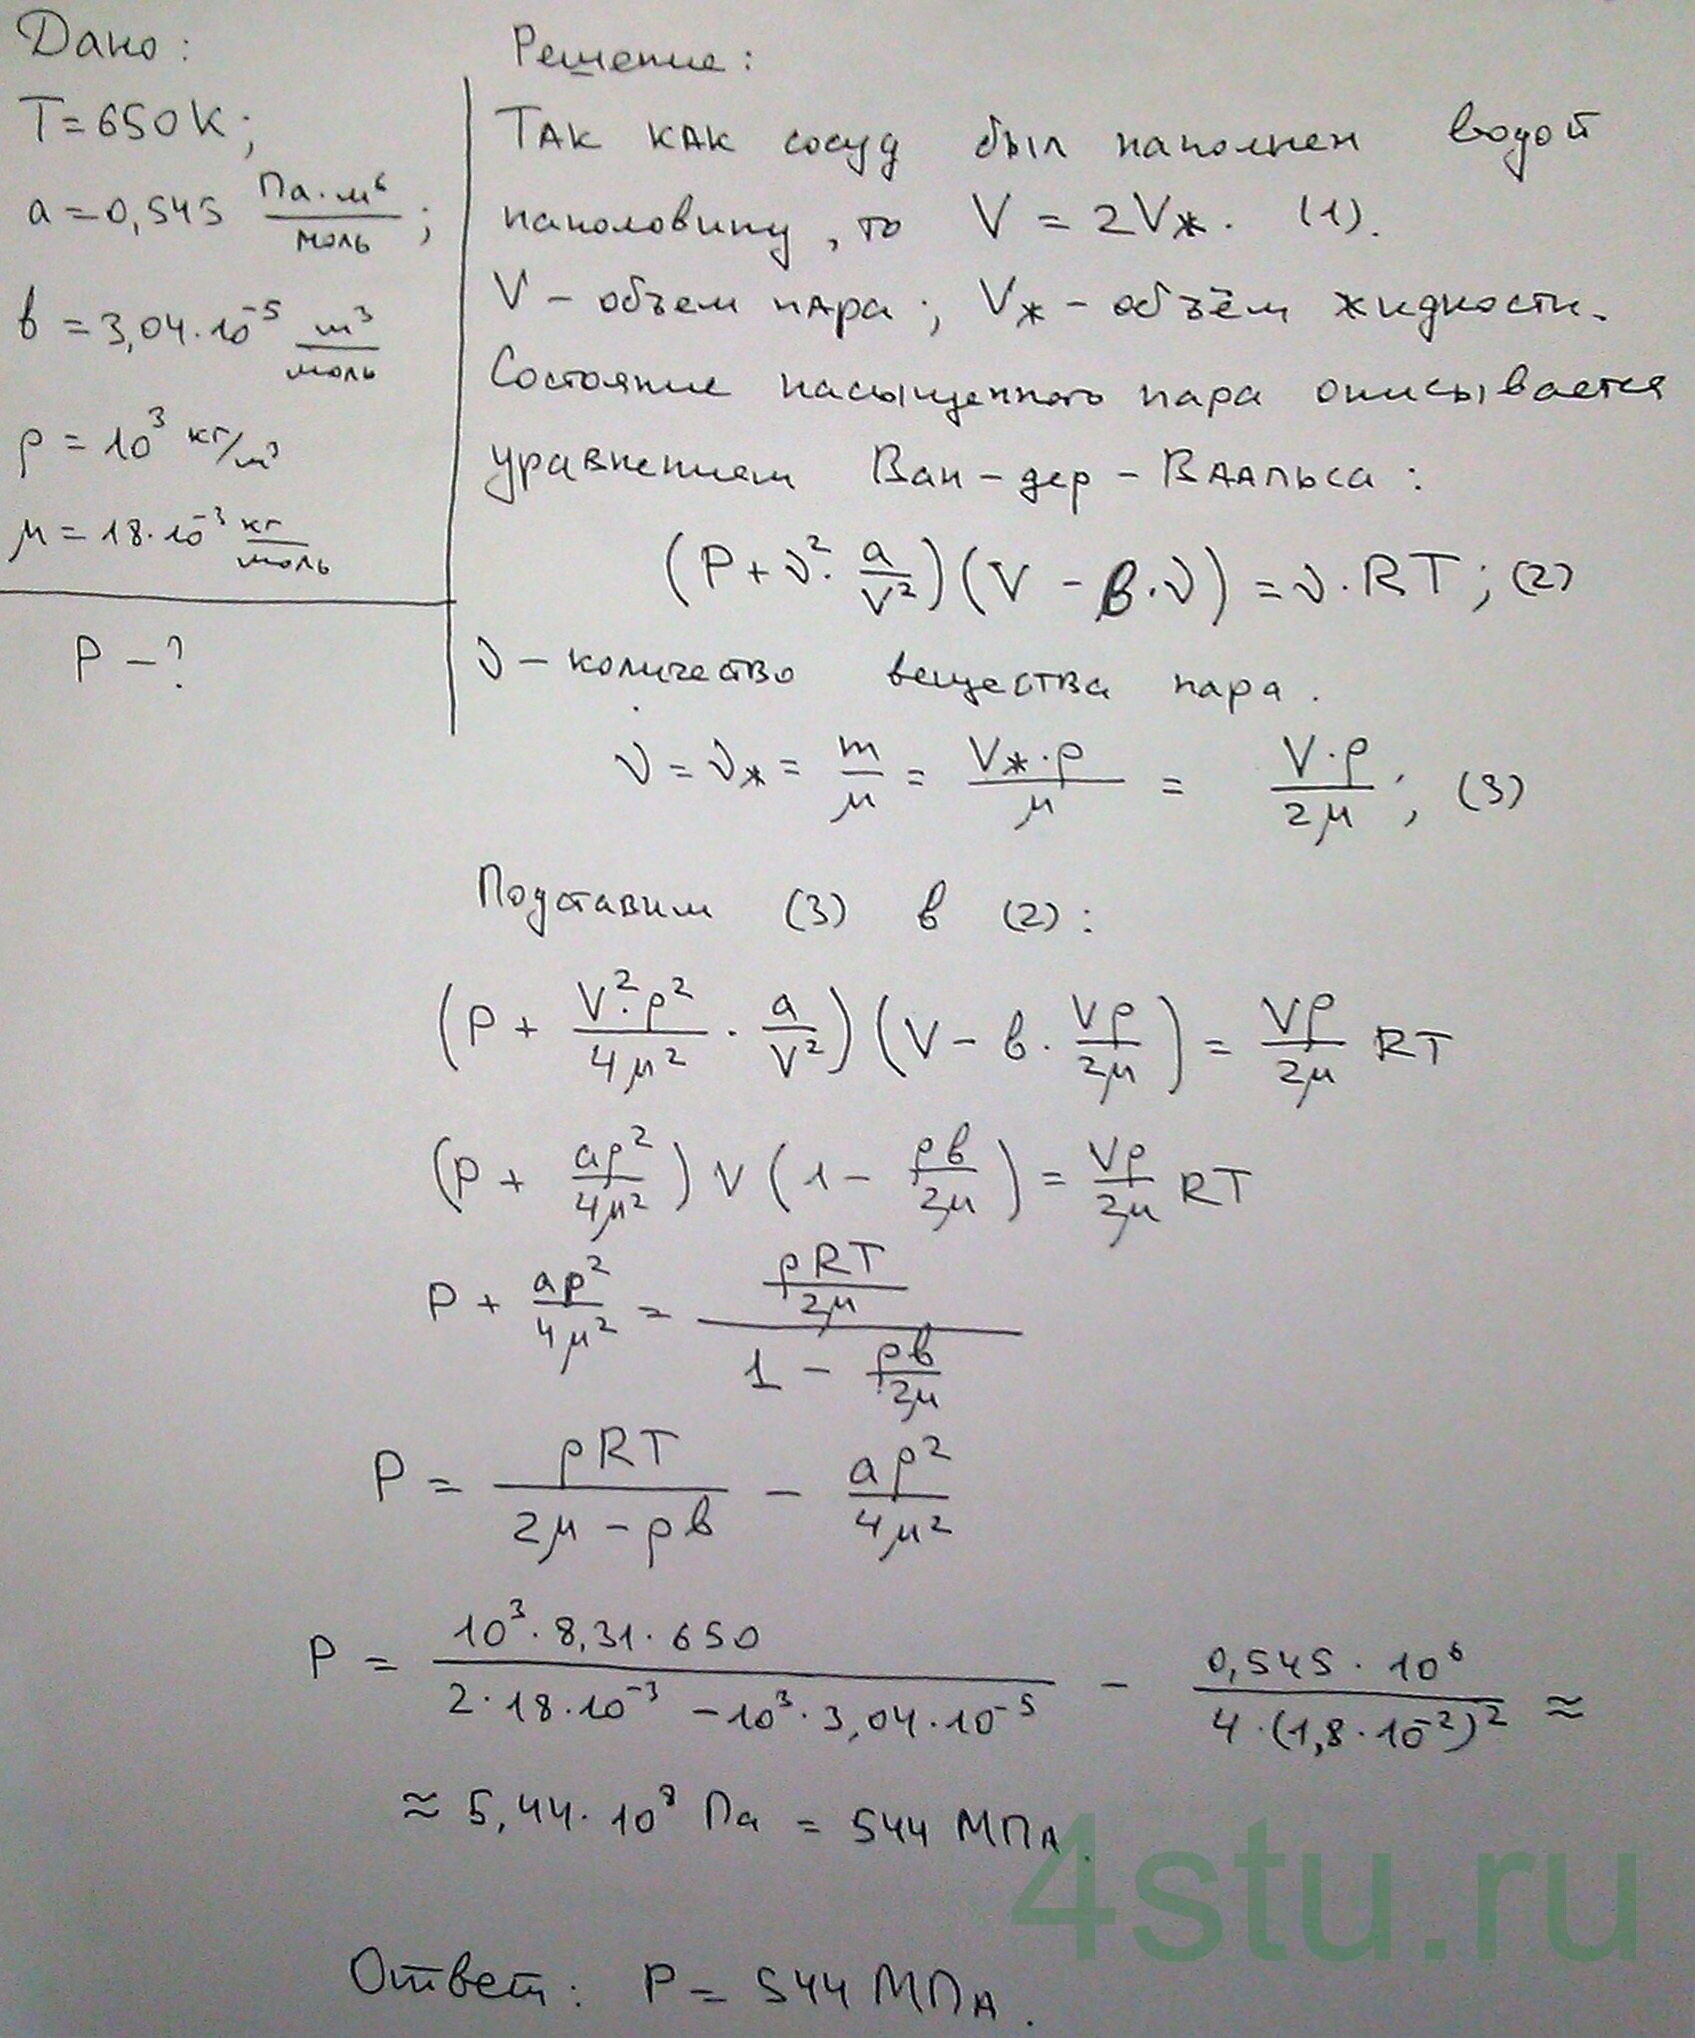 Дано:
T=650K;
a=0,545 Па·м⁶/моль;
в=3,04·10⁻⁵ м³/моль
ρ=10³ кг/м³
μ=18·10⁻³ кг/моль
P-?
Решение:
Так как сосуд был наполнен водой
наполовину, то V = 2Vж. (1).
V - объем пара; Vж - объём жидкости.
Состояние насыщенного пара описывается
уравнением Ван-дер-Ваальса:
(P + ν²·a/V²)(V - в·ν) = ν·RT; (2)
ν - количество вещества пара.
ν = νж = m/μ = Vж·ρ/μ = V·ρ/2μ; (3)
Подставим (3) в (2):
(P + V²·ρ²/4μ² · a/V²)(V - в·Vρ/2μ) = Vρ/2μ RT
(P + aρ²/4μ²)V(1 - ρв/2μ) = Vρ/2μ RT
P + aρ²/4μ² = (ρRT/2μ)/(1 - ρв/2μ)
P = ρRT/(2μ - ρв) - aρ²/4μ²
P = 10³·8,31·650/(2·18·10⁻³ - 10³·3,04·10⁻⁵) - 0,545·10⁶/(4·(1,8·10⁻²)²) ≈
≈ 5,44·10⁸ Па = 544 МПа.
Ответ: P = 544 МПа.
4stu.ru